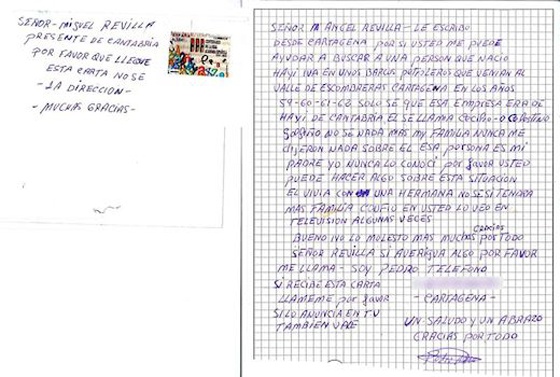 SEÑOR - MIGUEL REVILLA
PRESENTE DE CANTABRIA
POR FAVOR QUE LLEGUE
ESTA CARTA NO SE
- LA DIRECCION -
- MUCHAS GRACIAS -
SEÑOR M ANGEL REVILLA - LE ESCRIBO
DESDE CARTAGENA POR SI USTED ME PUEDE
AYUDAR A BUSCAR A UNA PERSON QUE NACIO
HAYI IVA EN UNOS BARCOS PETROLEROS QUE VENIAN AL
VALLE DE ESCOMBRERAS CARTAGENA EN LOS AÑOS
59-60-61-62 SOLO SE QUE ESA EMPRESA ERA DE
HAYI DE CANTABRIA EL SE LLAMA CECILIO - O CELESTINO
NO SE NADA MAS MY FAMILIA NUNCA ME
DIJERON NADA SOBRE EL ESA PERSONA ES MI
PADRE YO NUNCA LO CONOCI por favor USTED
PUEDE HACER ALGO SOBRE ESTA SITUACION
EL VIVIA CON UNA HERMANA NO SE SI TENDRA
MAS FAMILIA CONFIO EN USTED LO VEO EN
TELEVISION ALGUNAS VECES
BUENO NO LO MOLESTO MAS MUCHAS GRACIAS POR TODO
SEÑOR REVILLA SI AVERIGUA ALGO POR FAVOR
ME LLAMA - SOY PEDRO TELEFONO
SI RECIBE ESTA CARTA
LLAMEME por favor - CARTAGENA -
SI LO ANUNCIA EN TV
TAMBIEN VALE
UN-SALUDO Y UN ABRAZO
GRACIAS POR TODO